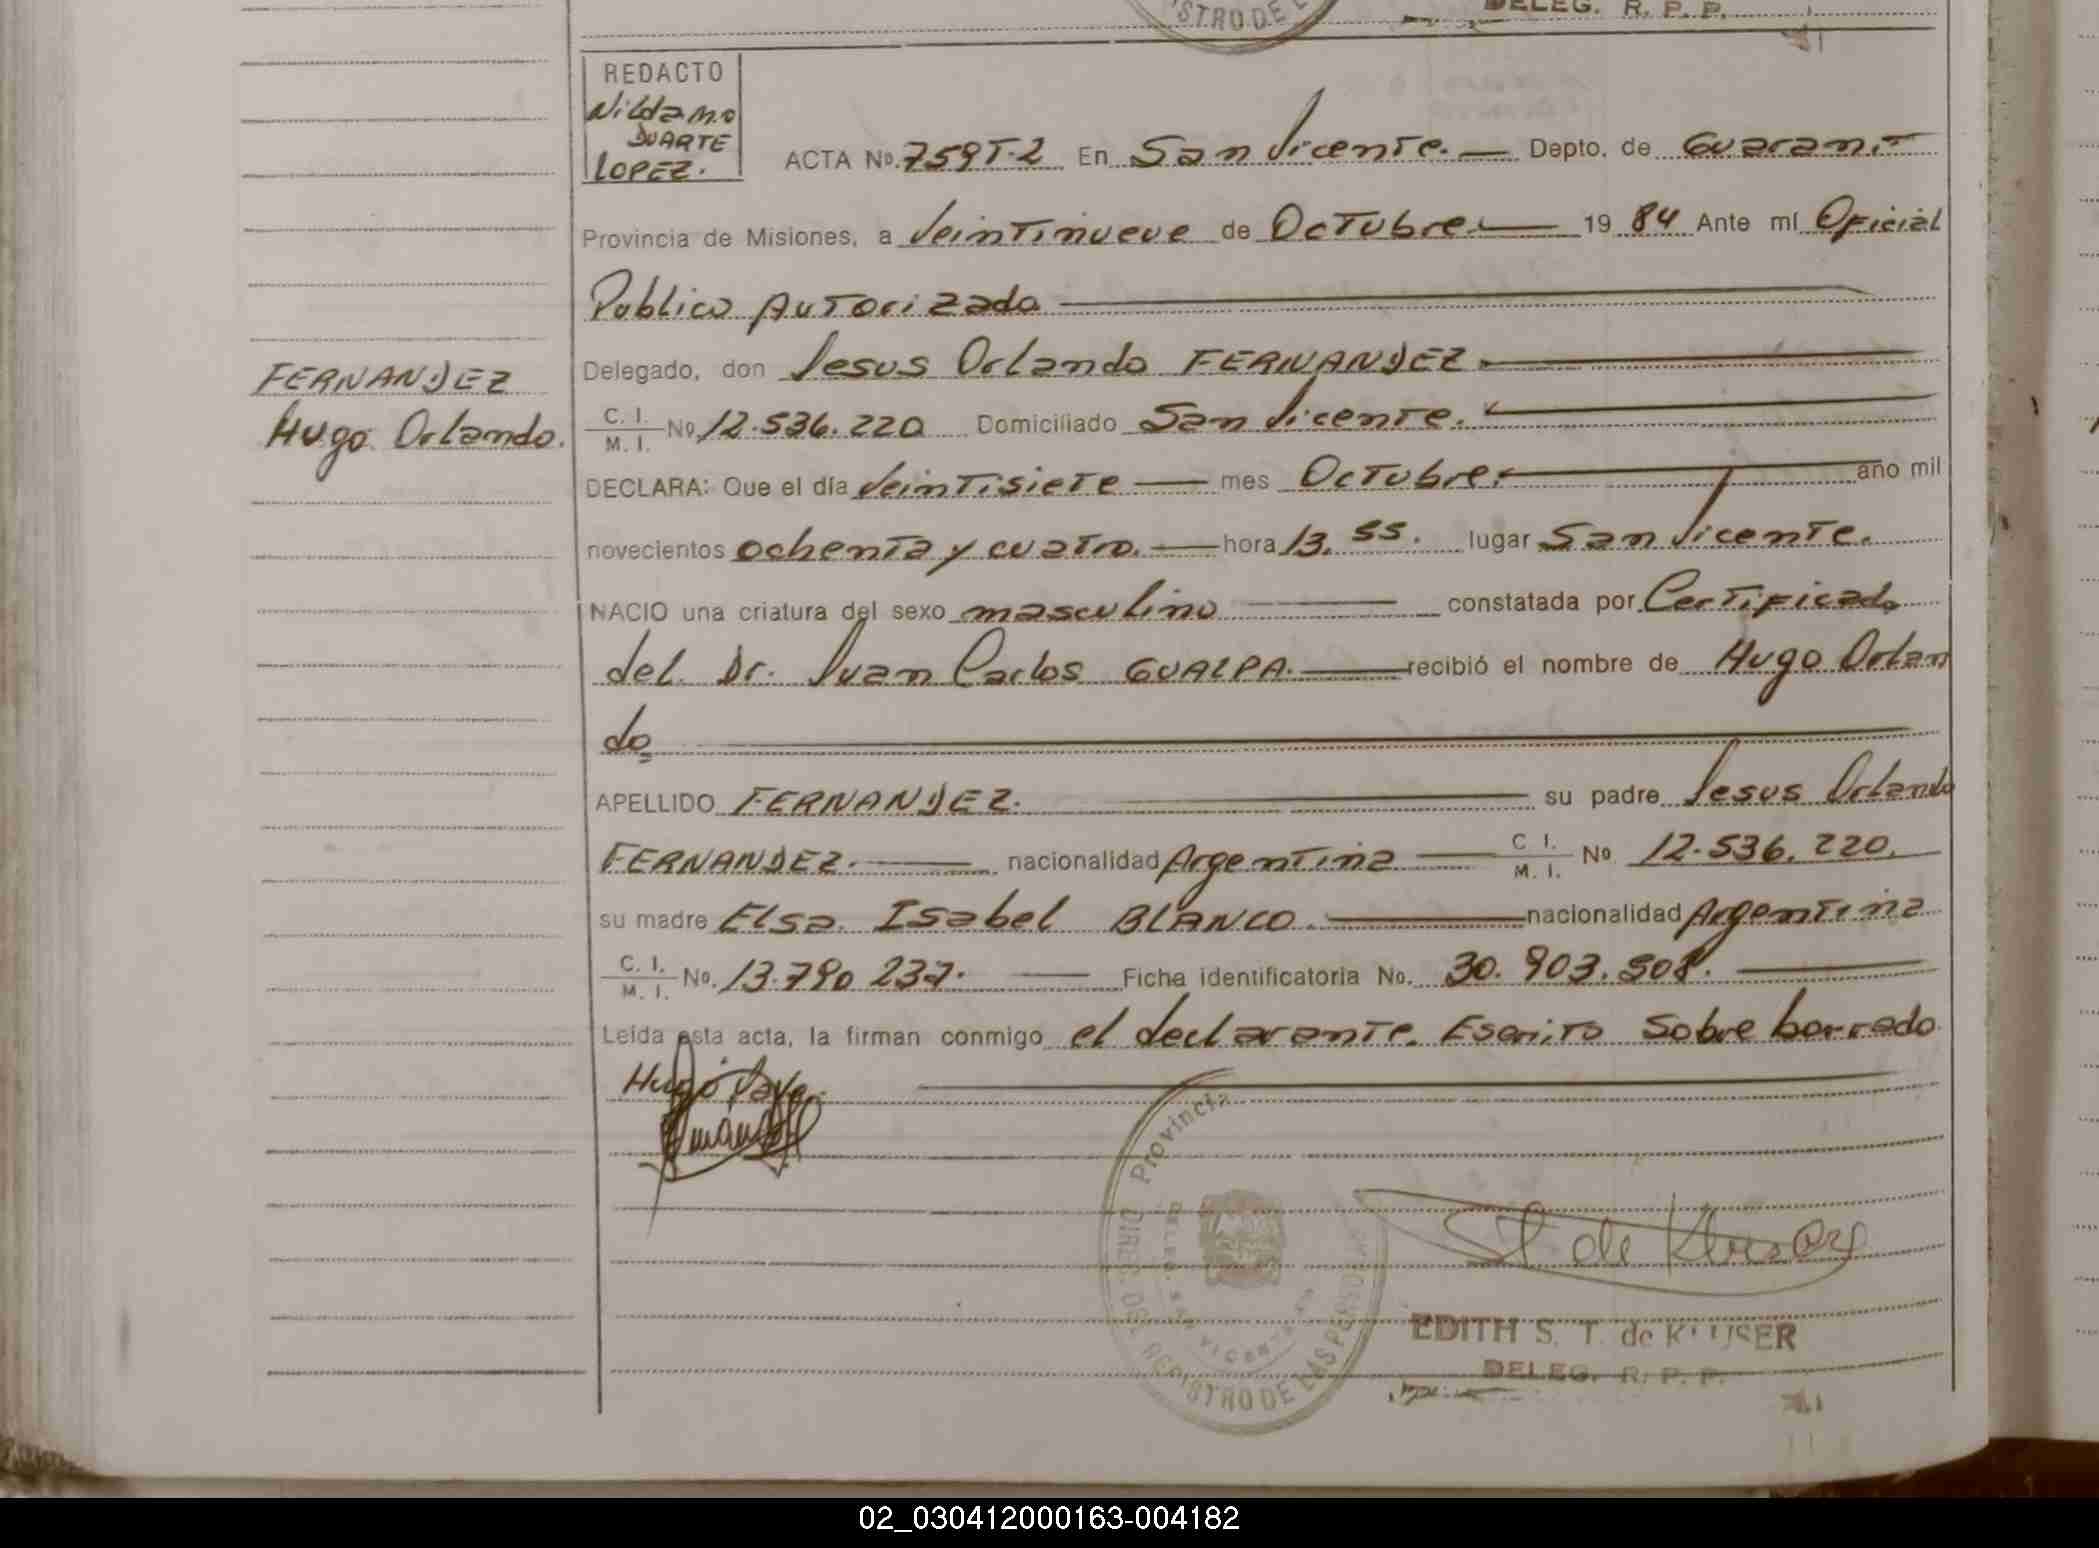 STRO DE L
DELEG. R. P. P.
REDACTO
Nilda M.
DUARTE
LOPEZ.
ACTA No. 759T-2 En San Vicente. — Depto. de Guaraní
Provincia de Misiones, a Veintinueve de Octubre. — 19 84 Ante mí Oficial
Publico Autorizado
Delegado, don Jesus Orlando FERNANDEZ
FERNANDEZ
Hugo Orlando.
C. I. / M. I. No. 12.536.220 Domiciliado San Vicente.
DECLARA: Que el día Veintisiete — mes Octubre. año mil
novecientos ochenta y cuatro. — hora 13.55. lugar San Vicente.
NACIO una criatura del sexo masculino — constatada por Certificado
del Dr. Juan Carlos GUALPA. — recibió el nombre de Hugo Orlan
do
APELLIDO FERNANDEZ. — su padre Jesus Orlando
FERNANDEZ. — nacionalidad Argentina — C. I. / M. I. No 12.536.220.
su madre Elsa Isabel BLANCO. — nacionalidad Argentina
C. I. / M. I. No. 13.790 237. — Ficha identificatoria No. 30.903.508. —
Leída esta acta, la firman conmigo el declarante. Escrito Sobre borrado
Hugo Vale.
Provincia
DIREC. DEL REGISTRO DE LAS PERSO
DELEG. SAN VICENTE
EDITH S. T. de KLUSER
DELEG. R. P. P.
02_030412000163-004182